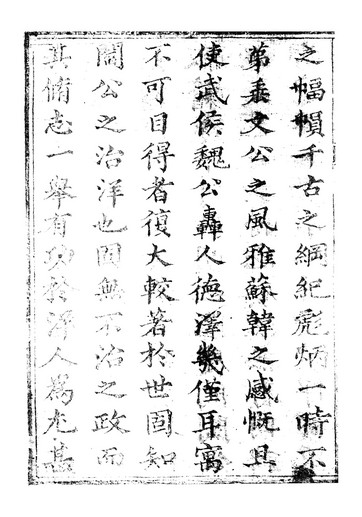 之幅幀千古之綱紀彪炳一時不
第垂文公之風雅蘇韓之感慨且
使武侯魏公轟人德澤幾僅耳寓
不可目得者復大較著於世固知
閎公之治洋也固無不治之政而
其脩志一舉有功於洋人為尤甚